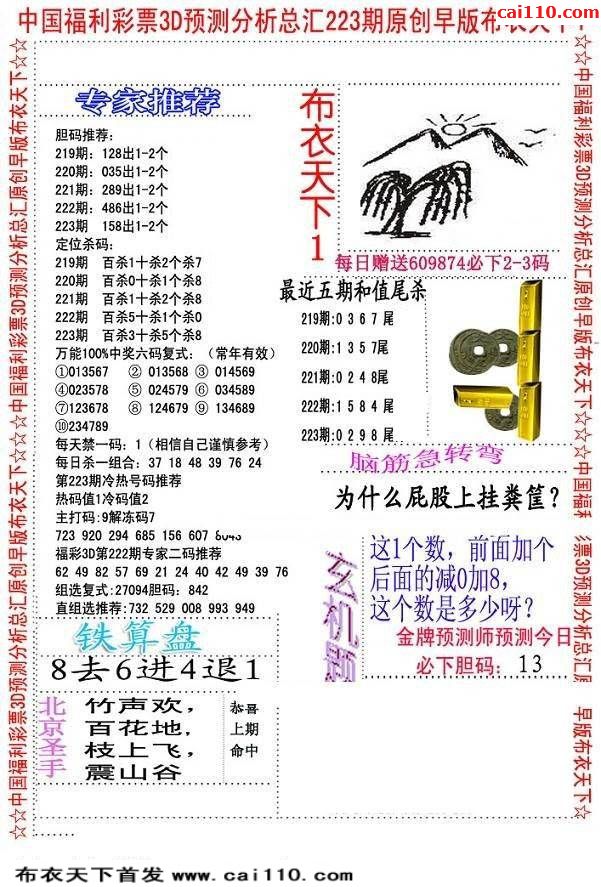 cai110.com
中国福利彩票3D预测分析总汇223期原创早版布衣天下
☆☆中国福利彩票3D预测分析总汇原创早版布衣天下☆☆中国福利彩票3D预测分析总汇原创早版布衣天下☆☆
专家推荐
胆码推荐:
219期: 128出1-2个
220期: 035出1-2个
221期: 289出1-2个
222期: 486出1-2个
223期 158出1-2个
定位杀码:
219期 百杀1十杀2个杀7
220期 百杀0十杀1个杀8
221期 百杀1十杀2个杀8
222期 百杀5十杀1个杀0
223期 百杀3十杀5个杀8
万能100%中奖六码复式: (常年有效)
①013567 ② 013568 ③ 014569
④023578 ⑤ 024579 ⑥ 034589
⑦123678 ⑧ 124679 ⑨ 134689
⑩234789
每天禁一码: 1 (相信自己谨慎参考)
每日杀一组合: 37 18 48 39 76 24
第223期冷热号码推荐
热码值1冷码值2
主打码:9解冻码7
723 920 294 685 156 607 8043
福彩3D第222期专家二码推荐
62 49 82 57 69 21 24 40 42 49 39 76
组选复式:27094胆码: 842
直组选推荐:732 529 008 993 949
铁算盘
8去6进4退1
北京圣手
竹声欢,
百花地,
枝上飞,
震山谷
恭喜
上期
命中
布衣天下1
每日赠送609874必下2-3码
最近五期和值尾杀
219期:0 3 6 7 尾
220期:1 3 5 7尾
221期:0 2 4 8尾
222期:1 5 8 4 尾
223期:0 2 9 8 尾
脑筋急转弯
为什么屁股上挂粪筐?
玄机题
这1个数, 前面加个
后面的减0加8,
这个数是多少呀?
金牌预测师预测今日
必下胆码: 13
☆☆中国福利彩票3D预测分析总汇原创早版布衣天下☆☆中国福利
彩票3D预测分析总汇原
早版布衣天下☆
布衣天下首发 www.cai110.com